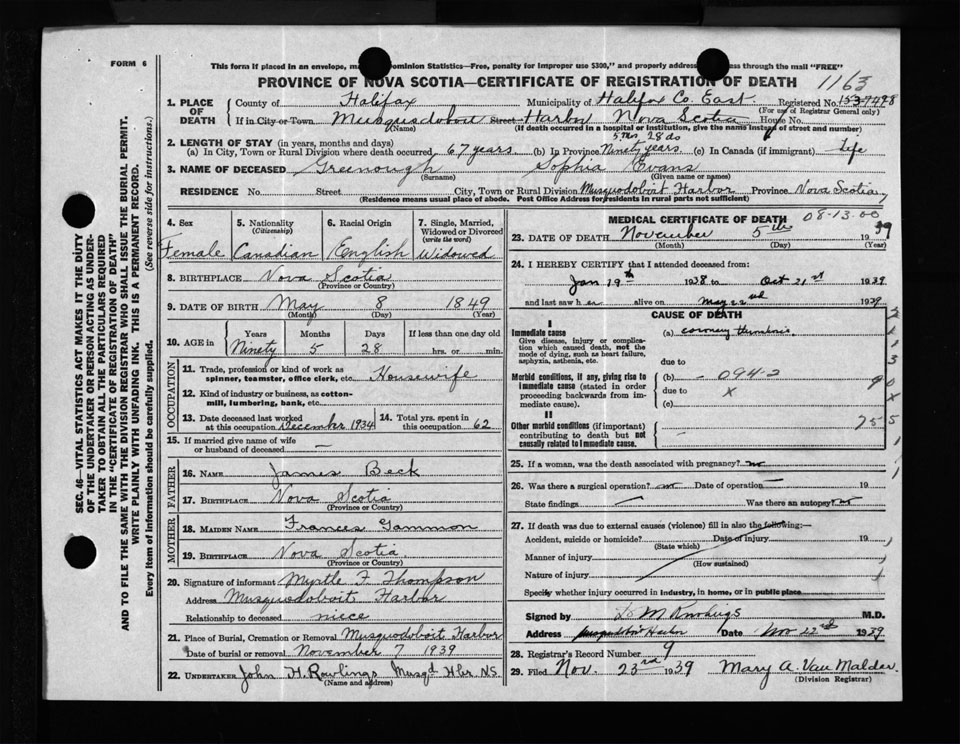 FORM 6
This form if placed in an envelope, ma Dominion Statistics—Free, penalty for improper use $300," and properly address ss through the mail "FREE"
PROVINCE OF NOVA SCOTIA—CERTIFICATE OF REGISTRATION OF DEATH
1163
1. PLACE OF DEATH
County of Halifax Municipality of Halifax Co. East Registered No.
(For use of Registrar General only)
If in City or Town Musquodoboit Street Harbor Nova Scotia House No.
(Name) (If death occurred in a hospital or institution, give the name instead of street and number)
2. LENGTH OF STAY (in years, months and days) 5 Mos 28 ds
(a) In City, Town or Rural Division where death occurred 67 years. (b) In Province Ninety years. (c) In Canada (if immigrant) Life
3. NAME OF DECEASED Greenough Sophia Evans
(Surname) (Given name or names)
RESIDENCE No. Street City, Town or Rural Division Musquodoboit Harbor Province Nova Scotia
(Residence means usual place of abode. Post Office Address for residents in rural parts not sufficient)
4. Sex Female
5. Nationality (Citizenship) Canadian
6. Racial Origin English
7. Single, Married, Widowed or Divorced (write the word) Widowed
8. BIRTHPLACE Nova Scotia
(Province or Country)
9. DATE OF BIRTH May 8 1849
(Month) (Day) (Year)
10. AGE in Years Months Days If less than one day old
Ninety 5 28 hrs. or min.
OCCUPATION
11. Trade, profession or kind of work as spinner, teamster, office clerk, etc. Housewife
12. Kind of industry or business, as cotton-mill, lumbering, bank, etc.
13. Date deceased last worked at this occupation December 1934
14. Total yrs. spent in this occupation 62
15. If married give name of wife or husband of deceased —
FATHER
16. NAME James Beck
17. BIRTHPLACE Nova Scotia
(Province or Country)
MOTHER
18. MAIDEN NAME Frances Gammon
19. BIRTHPLACE Nova Scotia
(Province or Country)
20. Signature of informant Myrtle F. Thompson
Address Musquodoboit Harbor
Relationship to deceased niece
21. Place of Burial, Cremation or Removal Musquodoboit Harbor
Date of burial or removal November 7 1939
22. UNDERTAKER John H. Rowlings Musqd Hbr N.S.
(Name and address)
MEDICAL CERTIFICATE OF DEATH 08-13.00
23. DATE OF DEATH November 5th 1939
(Month) (Day) (Year)
24. I HEREBY CERTIFY that I attended deceased from:
Jan 19th 1938 to Oct 21st 1939
and last saw her alive on May 22nd 1939
CAUSE OF DEATH
I
Immediate cause (a) coronary thrombosis
Give disease, injury or complication which caused death, not the mode of dying, such as heart failure, asphyxia, asthenia, etc.
due to
Morbid conditions, if any, giving rise to immediate cause (stated in order proceeding backwards from immediate cause).
(b) - 094-2
due to x
(c)
II
Other morbid conditions (if important) contributing to death but not causally related to immediate cause.
25. If a woman, was the death associated with pregnancy? no
26. Was there a surgical operation? no Date of operation — 19
State findings Was there an autopsy? no
27. If death was due to external causes (violence) fill in also the following:—
Accident, suicide or homicide? Date of injury 19
(State which)
Manner of injury
(How sustained)
Nature of injury
Specify whether injury occurred in industry, in home, or in public place
Signed by M.D.
Address Musquodoboit Harbor Date Nov 22nd 1939
28. Registrar's Record Number 9
29. Filed Nov. 23rd 1939 Mary A. Van Malder.
(Division Registrar)
SEC. 46—VITAL STATISTICS ACT MAKES IT THE DUTY
OF THE UNDERTAKER OR PERSON ACTING AS UNDER-
TAKER TO OBTAIN ALL THE PARTICULARS REQUIRED
IN THE "CERTIFICATE OF REGISTRATION OF DEATH"
AND TO FILE THE SAME WITH THE DIVISION REGISTRAR WHO SHALL ISSUE THE BURIAL PERMIT.
WRITE PLAINLY WITH UNFADING INK. THIS IS A PERMANENT RECORD.
Every item of information should be carefully supplied. (See reverse side for instructions.)